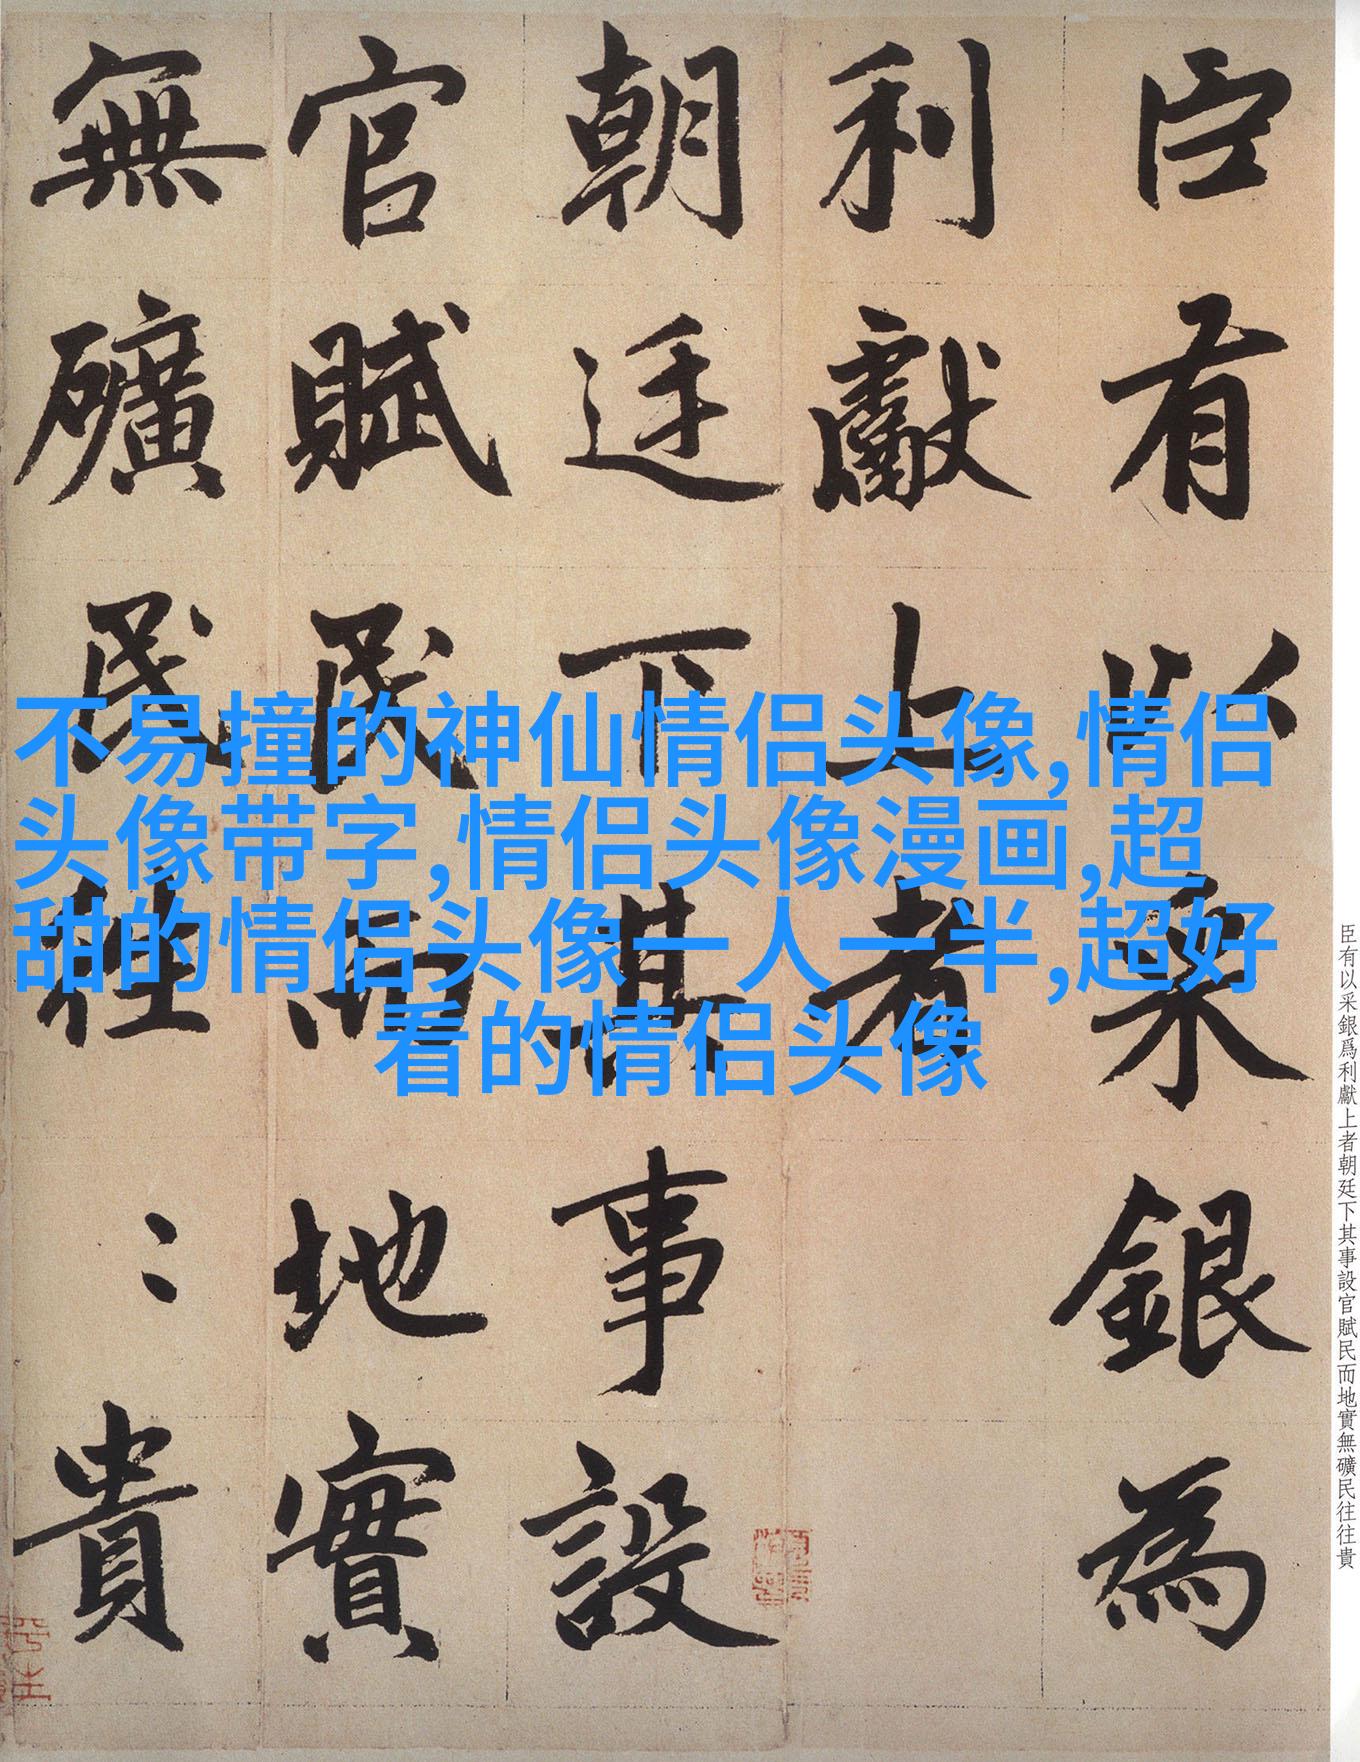 臣有以采銀為
利獻上者
朝廷下其事設
官賦民而地實
無礦民往〻貴
不易撞的神仙情侣头像,情侣
头像带字,情侣头像漫画,超
甜的情侣头像一人一半,超好
看的情侣头像
臣有以采銀爲利獻上者朝廷下其事設官賦民而地實無礦民往往貴